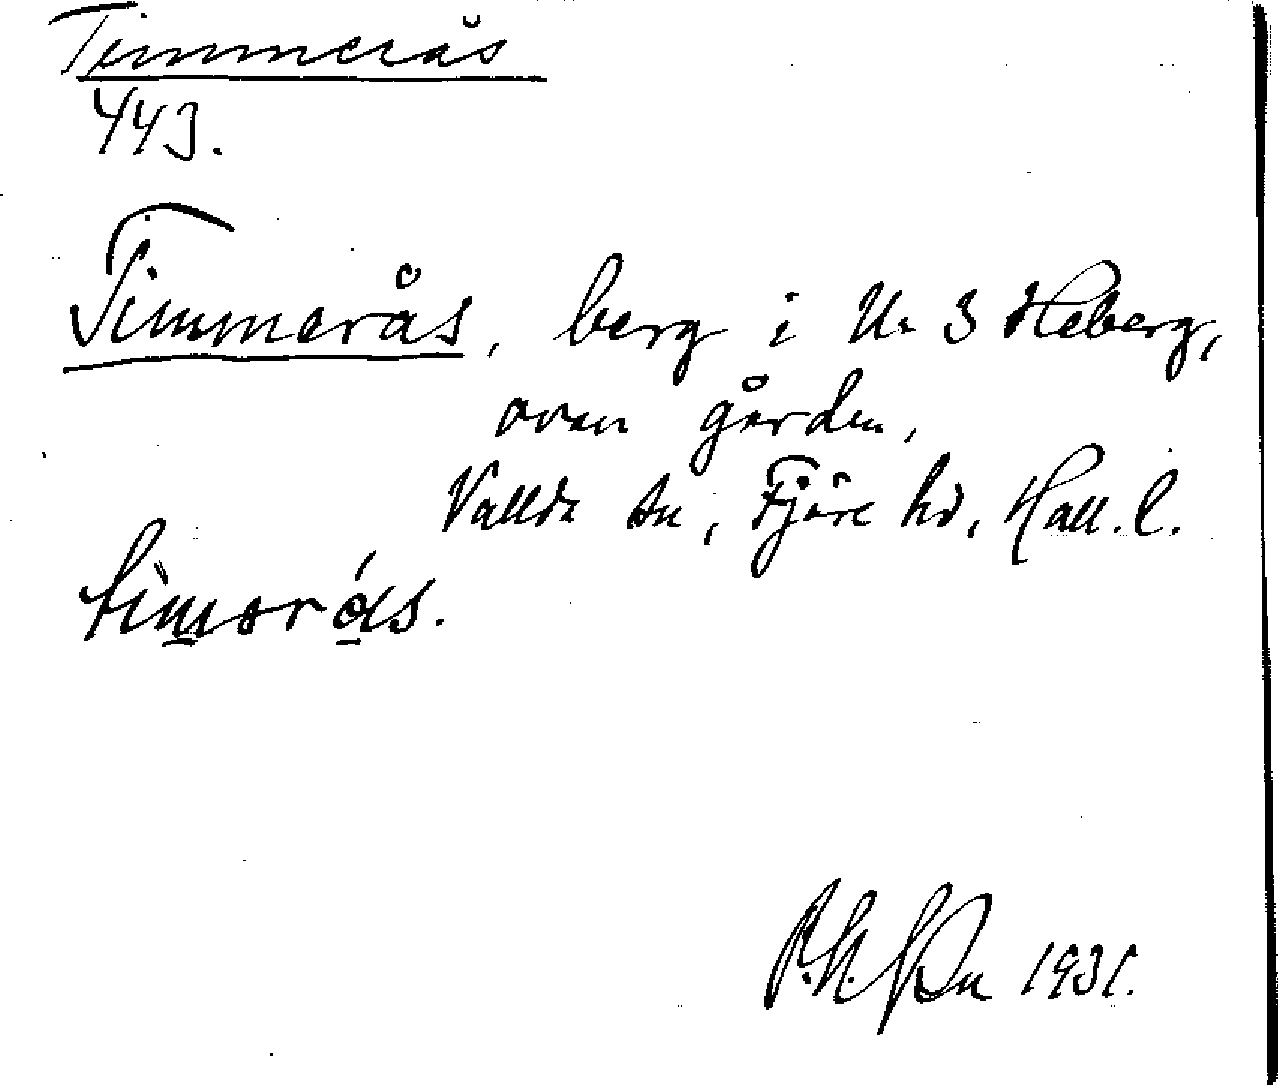 Timmerås
443.
Timmerås, berg i Nr 3 Heberg,
ovan gården,
Vallda sn, Fjäre hd, Hall. l.
1931.